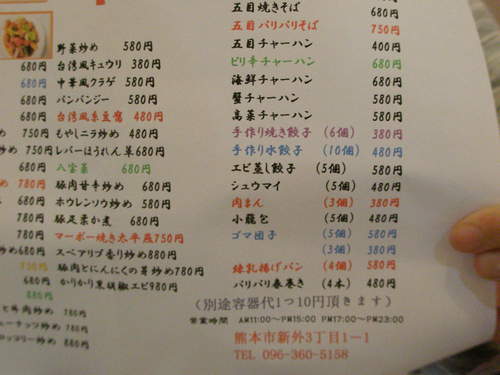 野菜炒め 580円
台湾風キュウリ 380円
中華風クラゲ 580円
バンバンジー 580円
台湾風糸豆腐 480円
もやしニラ炒め 480円
レバーほうれん草680円
八宝菜 680円
豚肉甘辛炒め 680円
ホウレンソウ炒め 580円
豚足菜か煮 680円
マーボー焼き太平燕750円
スペアリブ香り炒め880円
豚肉とにんにくの芽炒め780円
かりかり黒胡椒エビ980円
680円
680円
580円
680円
め 750円
炒め 750円
680円
め 780円
780円
780円
780円
炒め680円
750円
680円
ヒ牛肉炒め
ューナッツ炒め
ロッコリー炒め
五目焼きそば 680円
五目パリパリそば 750円
五目チャーハン 400円
ピリ辛チャーハン 680円
海鮮チャーハン 680円
蟹チャーハン 580円
高菜チャーハン 580円
手作り焼き餃子 (6個) 380円
手作り水餃子 (10個) 480円
エビ蒸し餃子 (5個) 580円
シュウマイ (5個) 480円
肉まん (3個) 380円
小龍包 (5個) 480円
ゴマ団子 (5個) 580円
(3個) 380円
練乳揚げパン (4個) 580円
パリパリ春巻き (4本) 480円
(別途容器代1つ10円頂きます)
営業時間 AM11:00～PM15:00 PM17:00～PM23:00
熊本市新外3丁目1-1
TEL 096-360-5158